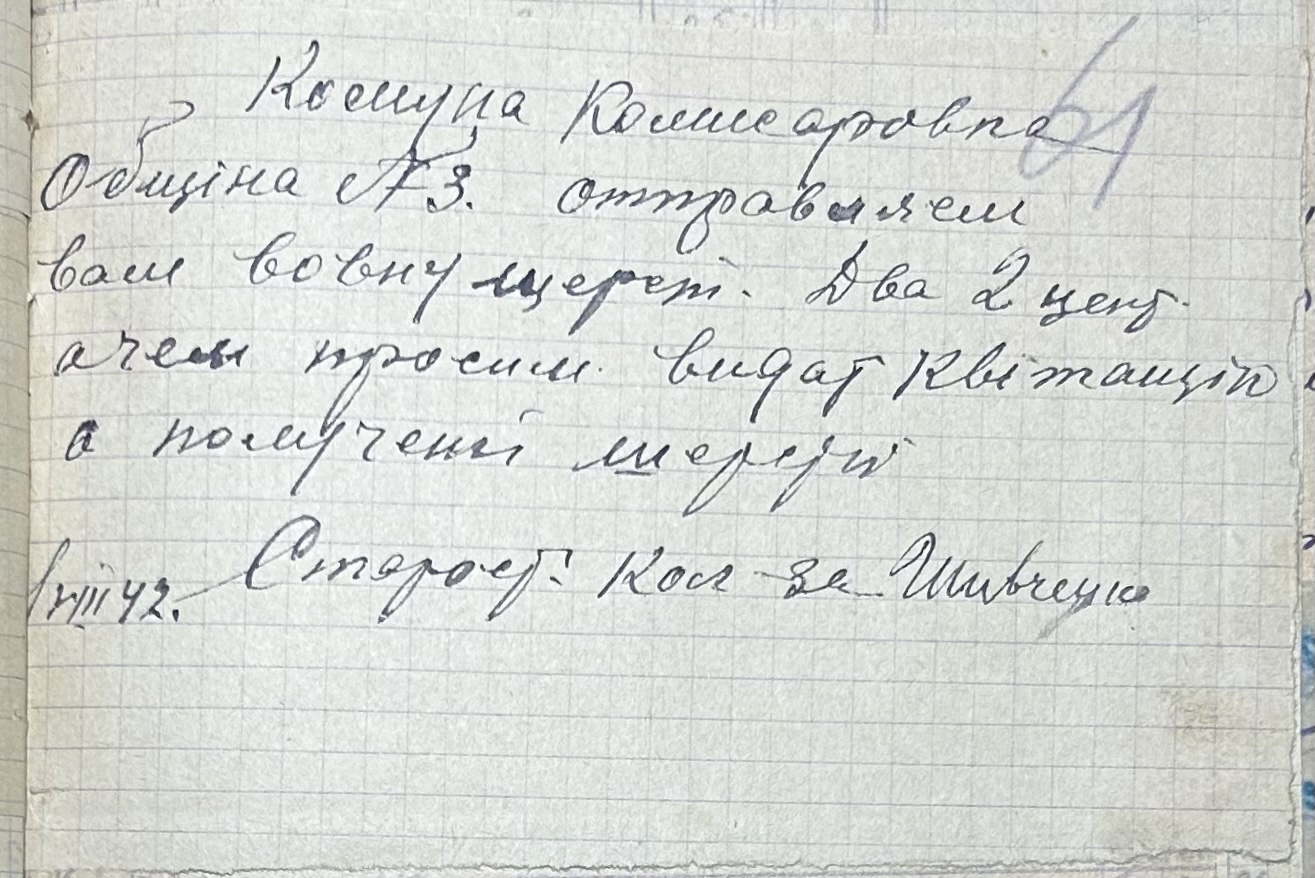 61
Комуна Комисаровка
Община №3. отправляем
вам вовну шерсті. Два 2 цент.
ачем просим видат Квітанцію
о полученні шерсти
VIII 42. Старост. Кол-за Шивченко